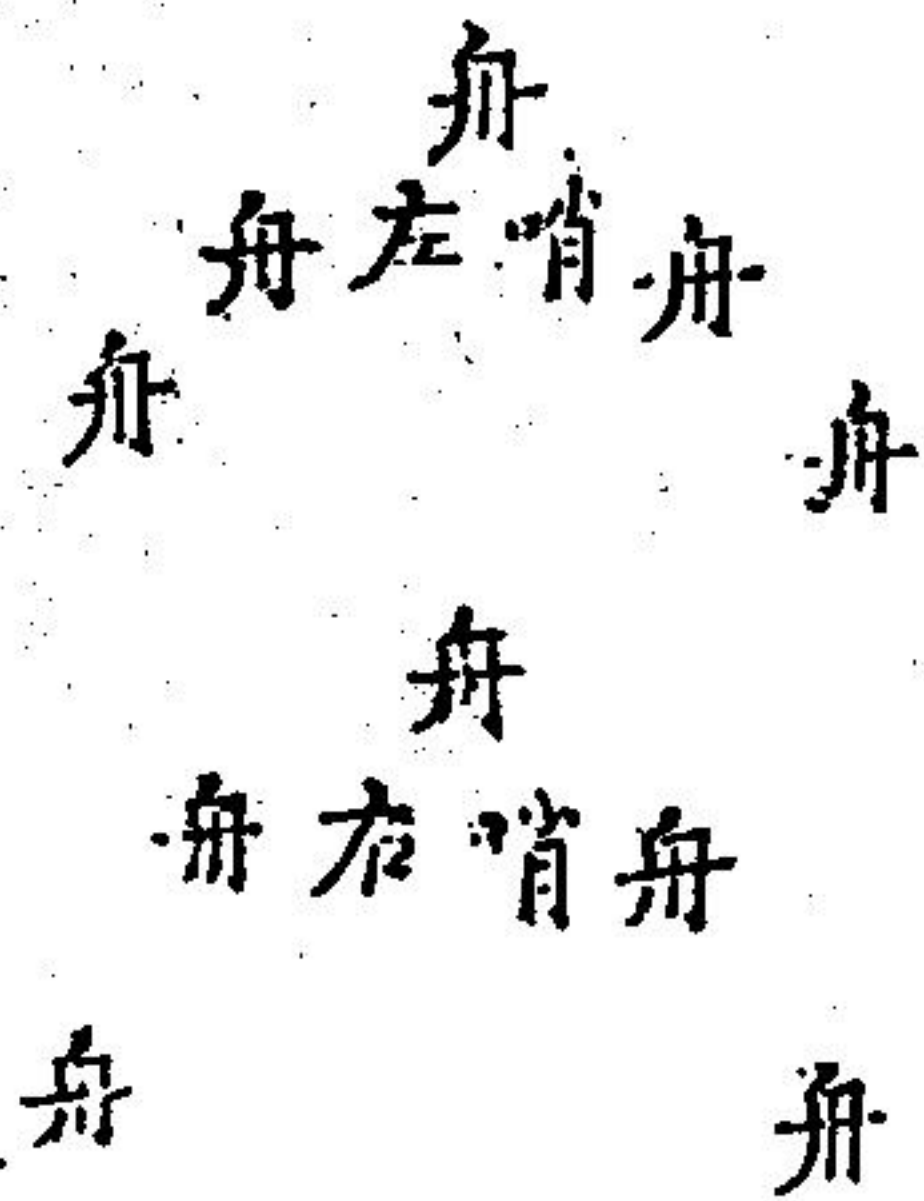 舟
舟左哨舟
舟
舟
舟
舟右哨舟
舟
舟